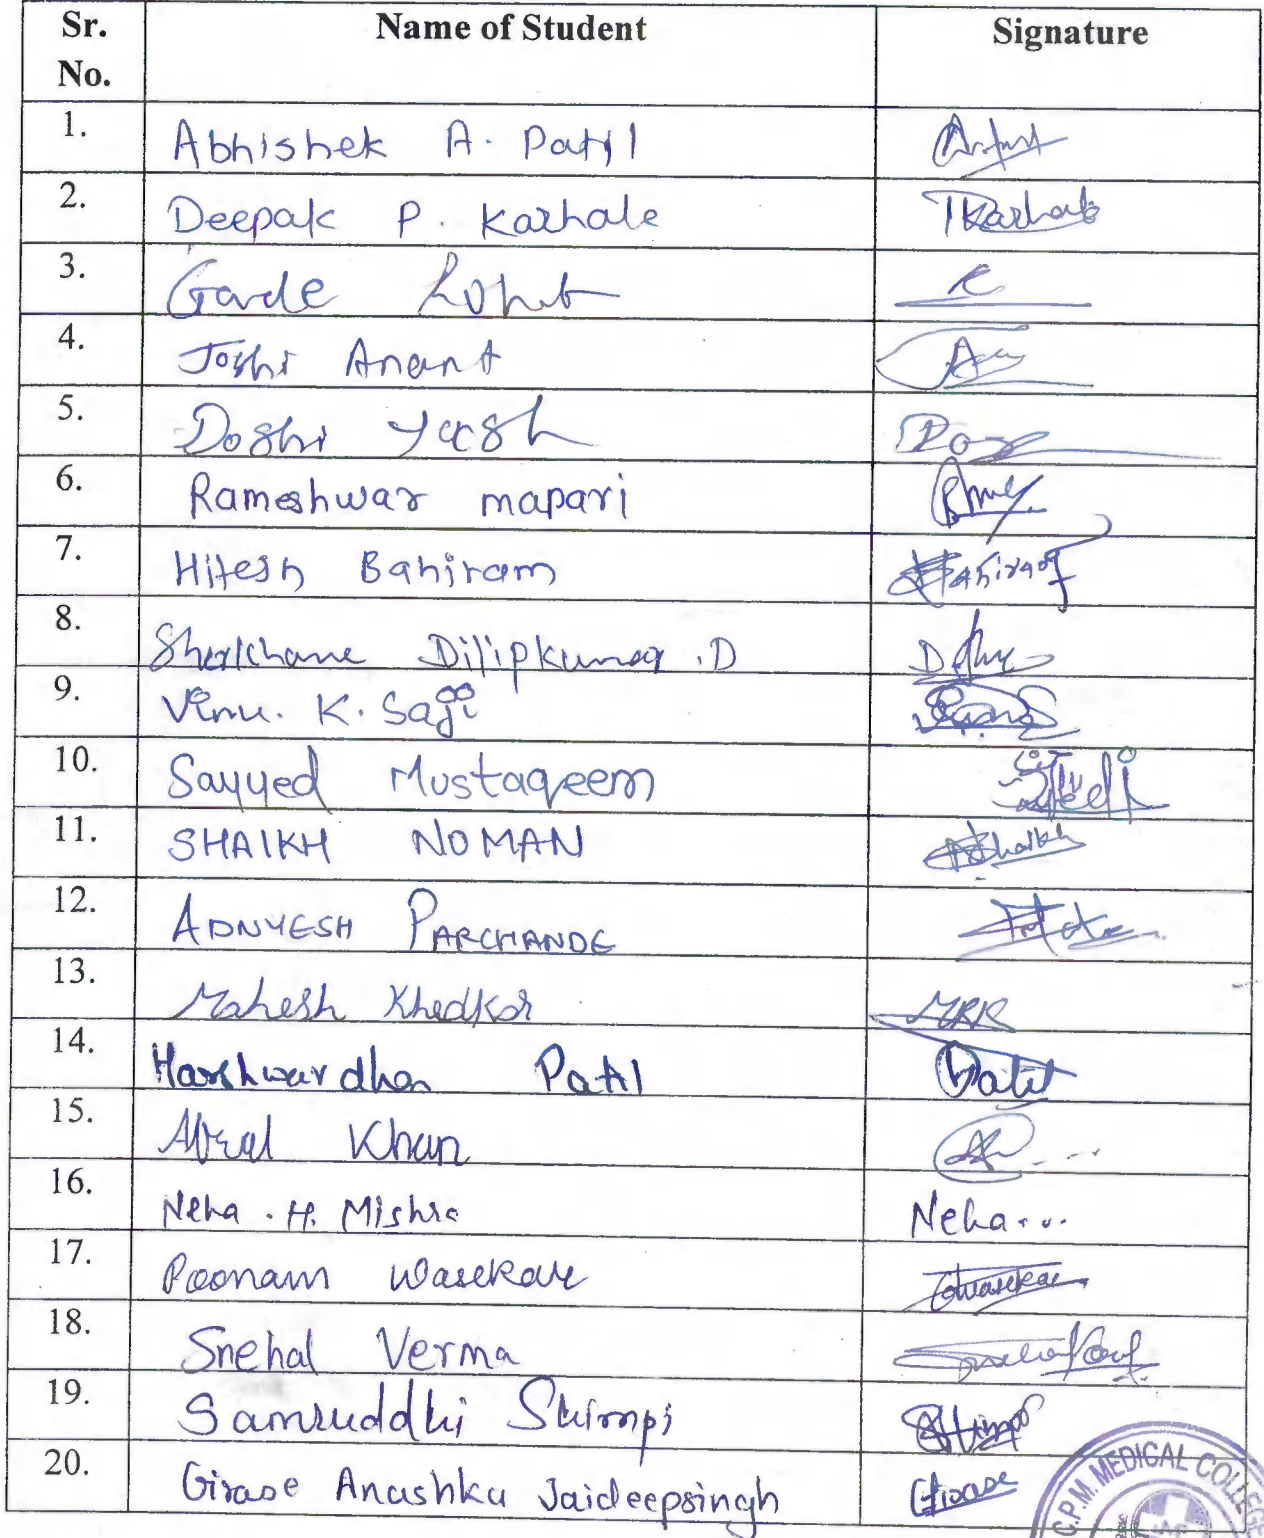 Sr. No. Name of Student Signature
1. Abhishek A. Patil
2. Deepak P. Karhale Karhale
3. Garde Rohit R
4. Joshi Anant
5. Doshi Yash
6. Rameshwar mapari
7. Hitesh Bahiram Bahiram
8. Sherkhane Dilipkumar .D
9. Vinu. K. Saji
10. Sayyed Mustaqeem
11. SHAIKH NOMAN Shaikh
12. ADNYESH PARCHANDE
13. Mahesh Khedkar MRK
14. Harshwardhan Patil Patil
15. Khan
16. Neha . H. Mishra Neha...
17. Poonam Wasekar Wasekar
18. Snehal Verma
19. Samruddhi Shimpi Shimpi
20. Girase Anushka Jaideepsingh Girase
C.P.M. MEDICAL COLLEGE